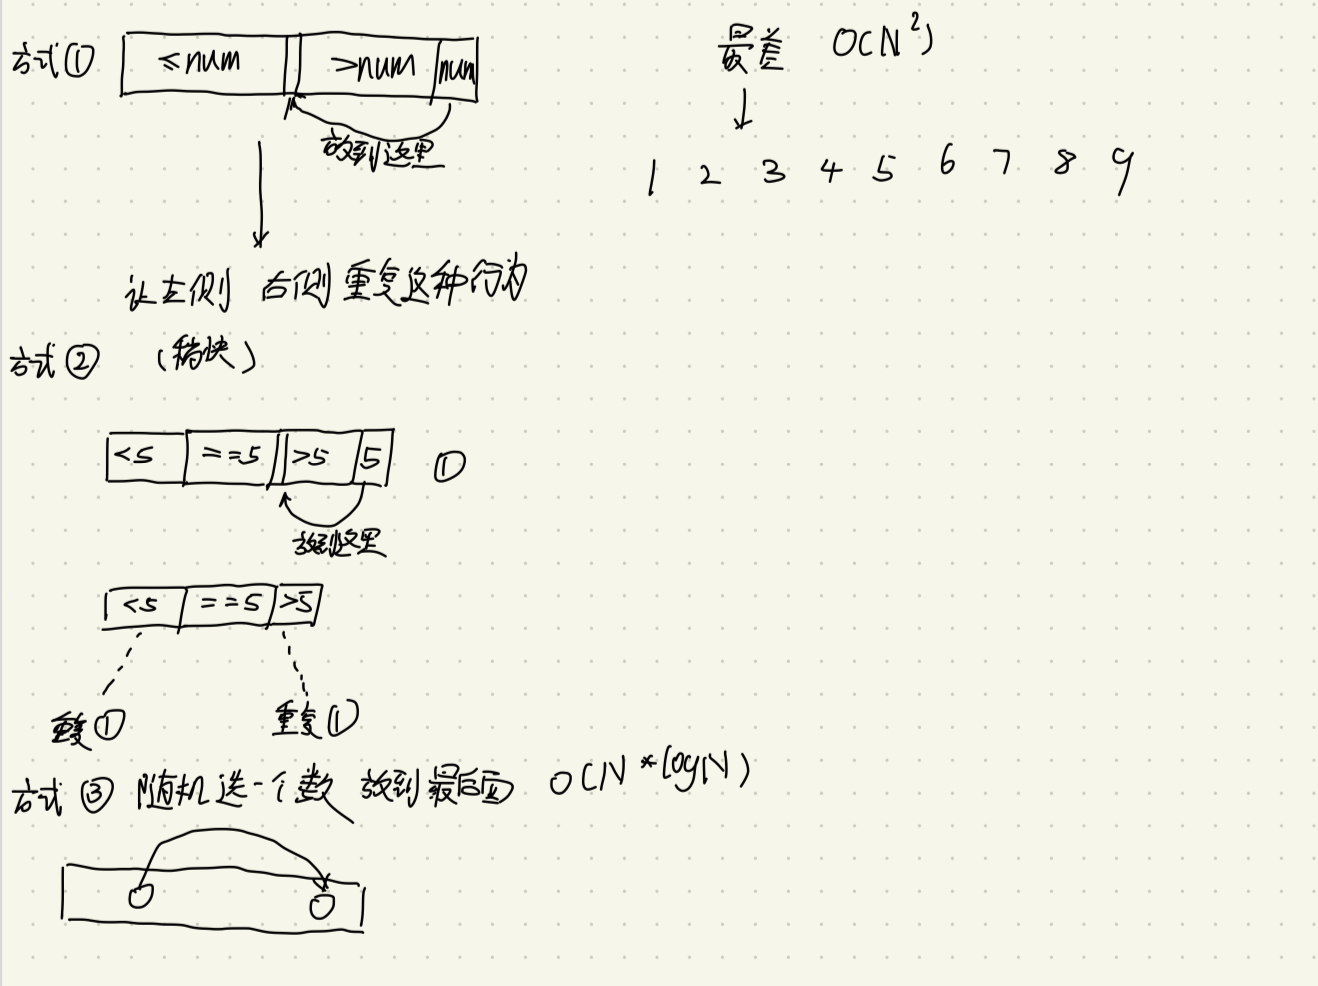 方式① ≤num >num num
放到这里
让左侧 右侧重复这种行为
最差 O(N²)
1 2 3 4 5 6 7 8 9
方式② (稍快)
<5 ==5 >5 5 ①
放到这里
<5 ==5 >5
重复① 重复①
方式③ 随机选一个数 放到最后面 O(N*logN)